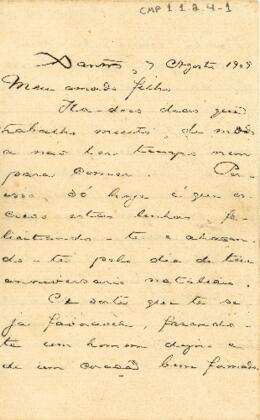 CMP 1.1.2.4-1
Santos, 7 Agosto 1909
Meu amado filho
Ha dois dias que
trabalho muito, de modo
a não ter tempo nem
para comer. Por
isso, só hoje é que es
crevo estas linhas fe-
licitando-te e abraçan
do-te pelo dia de teu
anniversario natalicio.
a sorte que te se
ja favoravel, fazendo-
te um homem digno e
de um coração bem formado.